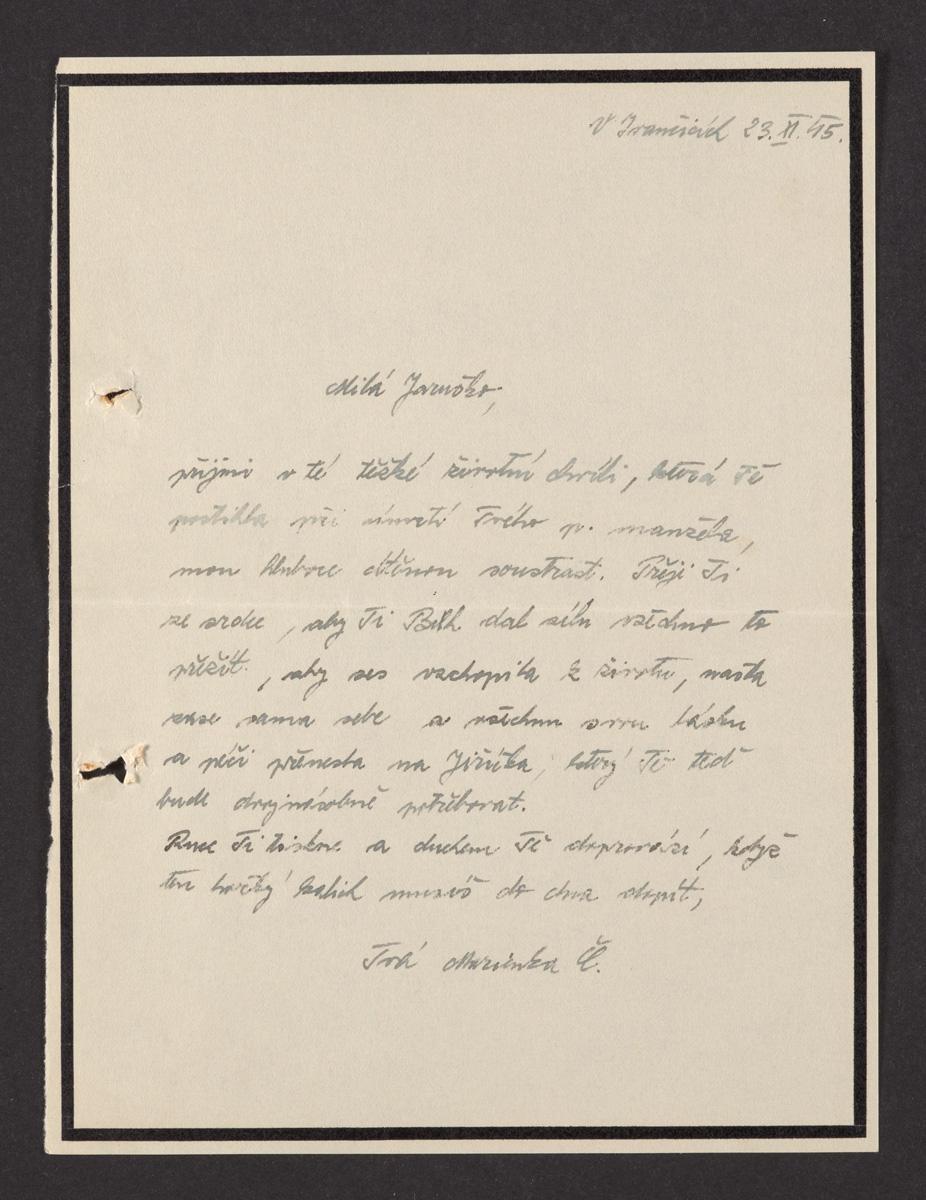 V Ivančicích 23. XI. 45.
Milá Jaruško,
přijmi v té těžké životní chvíli, která Tě
postihla při úmrtí Tvého p. manžela,
mou hluboce cítěnou soustrast. Přeji Ti
ze srdce, aby Ti Bůh dal sílu všechno to
přežít, aby ses vzchopila k životu, našla
zase sama sebe a všechnu svou lásku
a péči přenesla na Jiříčka, který Tě teď
bude dvojnásobně potřebovat.
Ruce Ti tiskne a duchem Tě doprovází, když
ten hořký kalich musíš do dna dopít,
Tvá Mařenka Č.